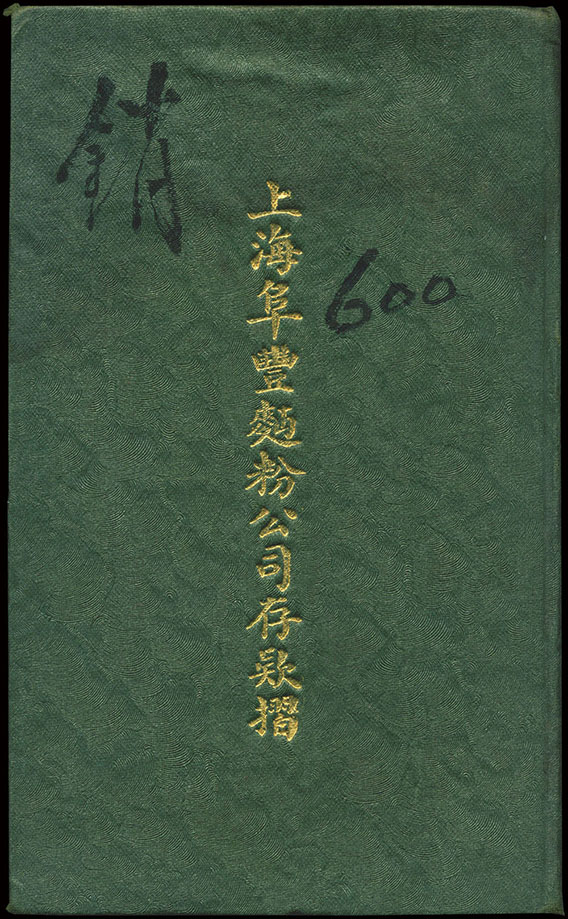 銷
上海阜豐麵粉公司存欵摺
600